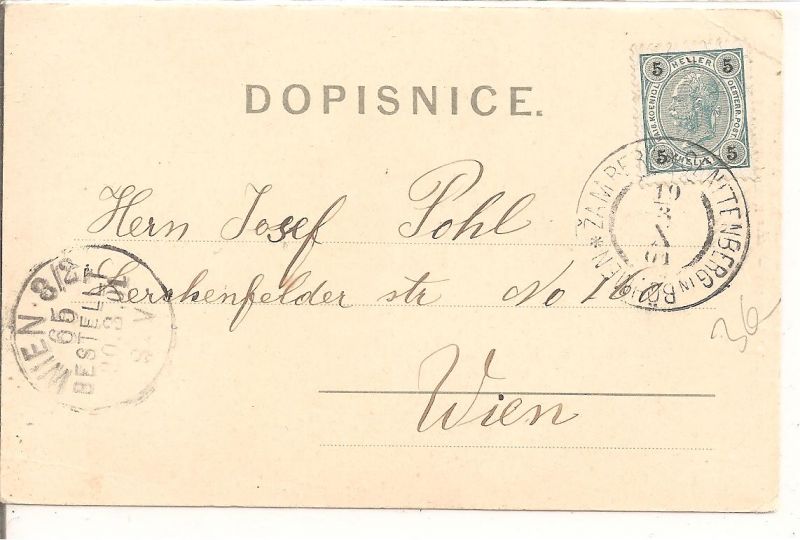 5 HELLER 5
KAIS. KOENIGL. OESTERR. POST.
5 HELLER 5
DOPISNICE.
ŽAMBERK SENFTENBERG IN BÖHMEN *
19
3
01
Herrn Josef Pohl
Lerchenfelder str No 162
WIEN 8/2
65
BESTELLT
20.3.01
Wien
36